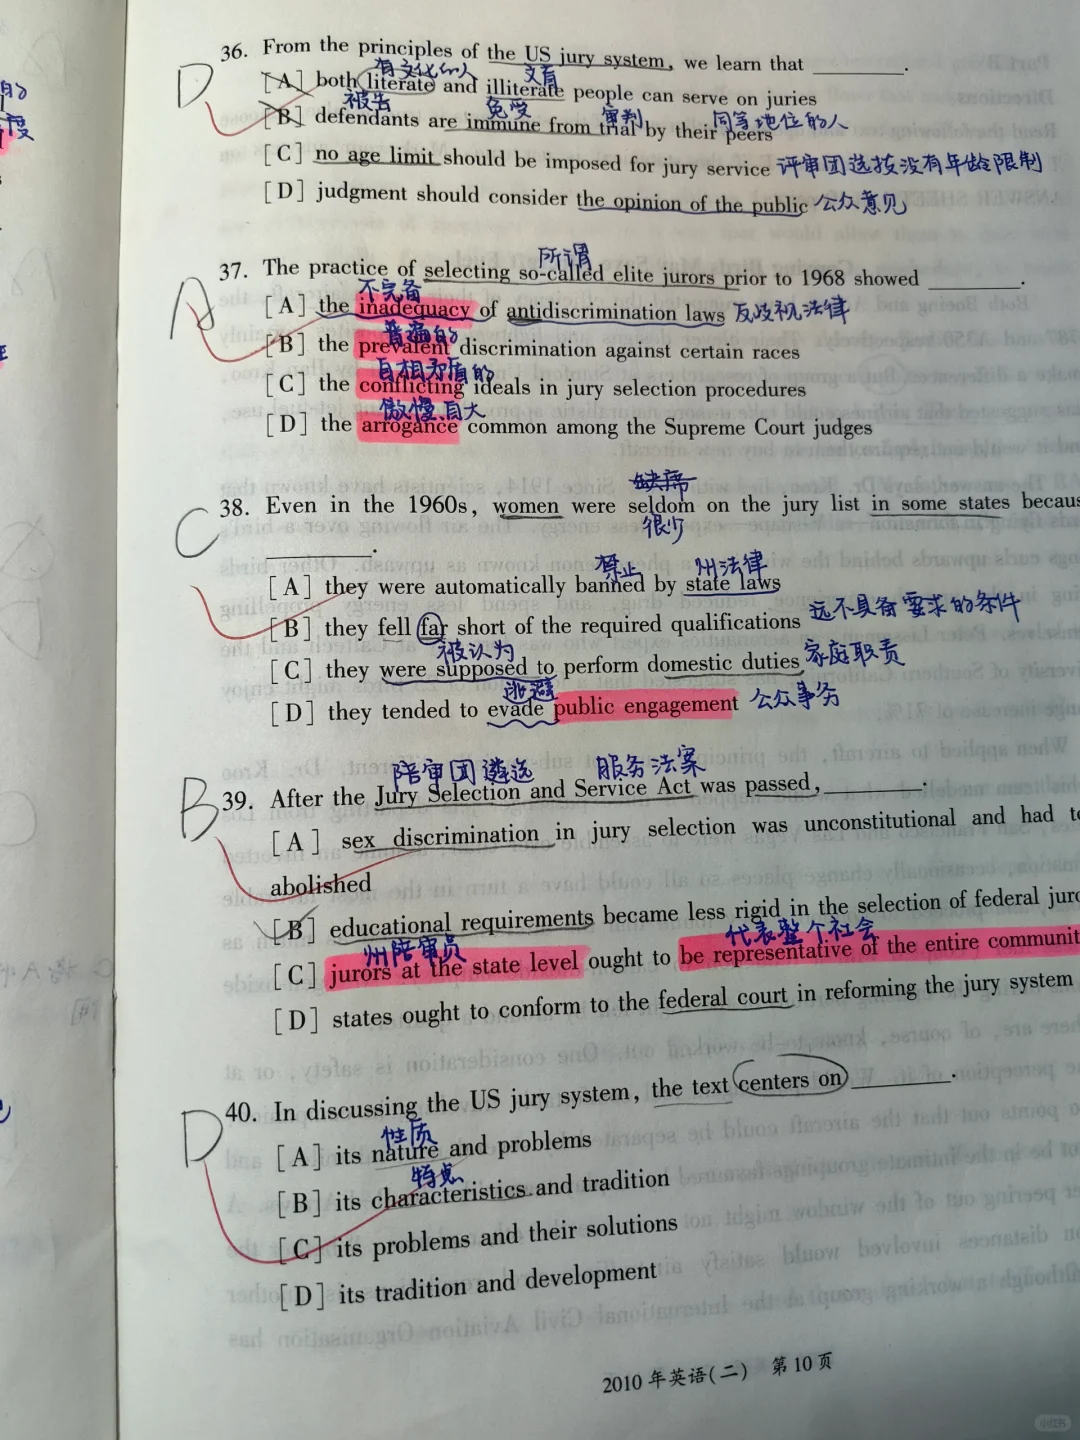 D
36. From the principles of the US jury system, we learn that ________.
有文化的人 文盲
[A] both literate and illiterate people can serve on juries
被告 免受 审判 同等地位的人
[B] defendants are immune from trial by their peers
[C] no age limit should be imposed for jury service 评审团选拔没有年龄限制
[D] judgment should consider the opinion of the public 公众意见
所谓
A
37. The practice of selecting so-called elite jurors prior to 1968 showed ________.
不完备
[A] the inadequacy of antidiscrimination laws 反歧视法律
普遍的
[B] the prevalent discrimination against certain races
自相矛盾的
[C] the conflicting ideals in jury selection procedures
傲慢、自大
[D] the arrogance common among the Supreme Court judges
缺席
C
38. Even in the 1960s, women were seldom on the jury list in some states becaus
很少
________.
禁止 州法律
[A] they were automatically banned by state laws
[B] they fell far short of the required qualifications 远不具备要求的条件
被认为
[C] they were supposed to perform domestic duties 家庭职责
逃避
[D] they tended to evade public engagement 公众事务
陪审团遴选 服务法案
B
39. After the Jury Selection and Service Act was passed, ________.
[A] sex discrimination in jury selection was unconstitutional and had to
abolished
[B] educational requirements became less rigid in the selection of federal juro
州陪审员 代表整个社会
[C] jurors at the state level ought to be representative of the entire communit
[D] states ought to conform to the federal court in reforming the jury system
D
40. In discussing the US jury system, the text centers on ________.
性质
[A] its nature and problems
特点
[B] its characteristics and tradition
[C] its problems and their solutions
[D] its tradition and development
2010 年英语(二) 第 10 页
小红书